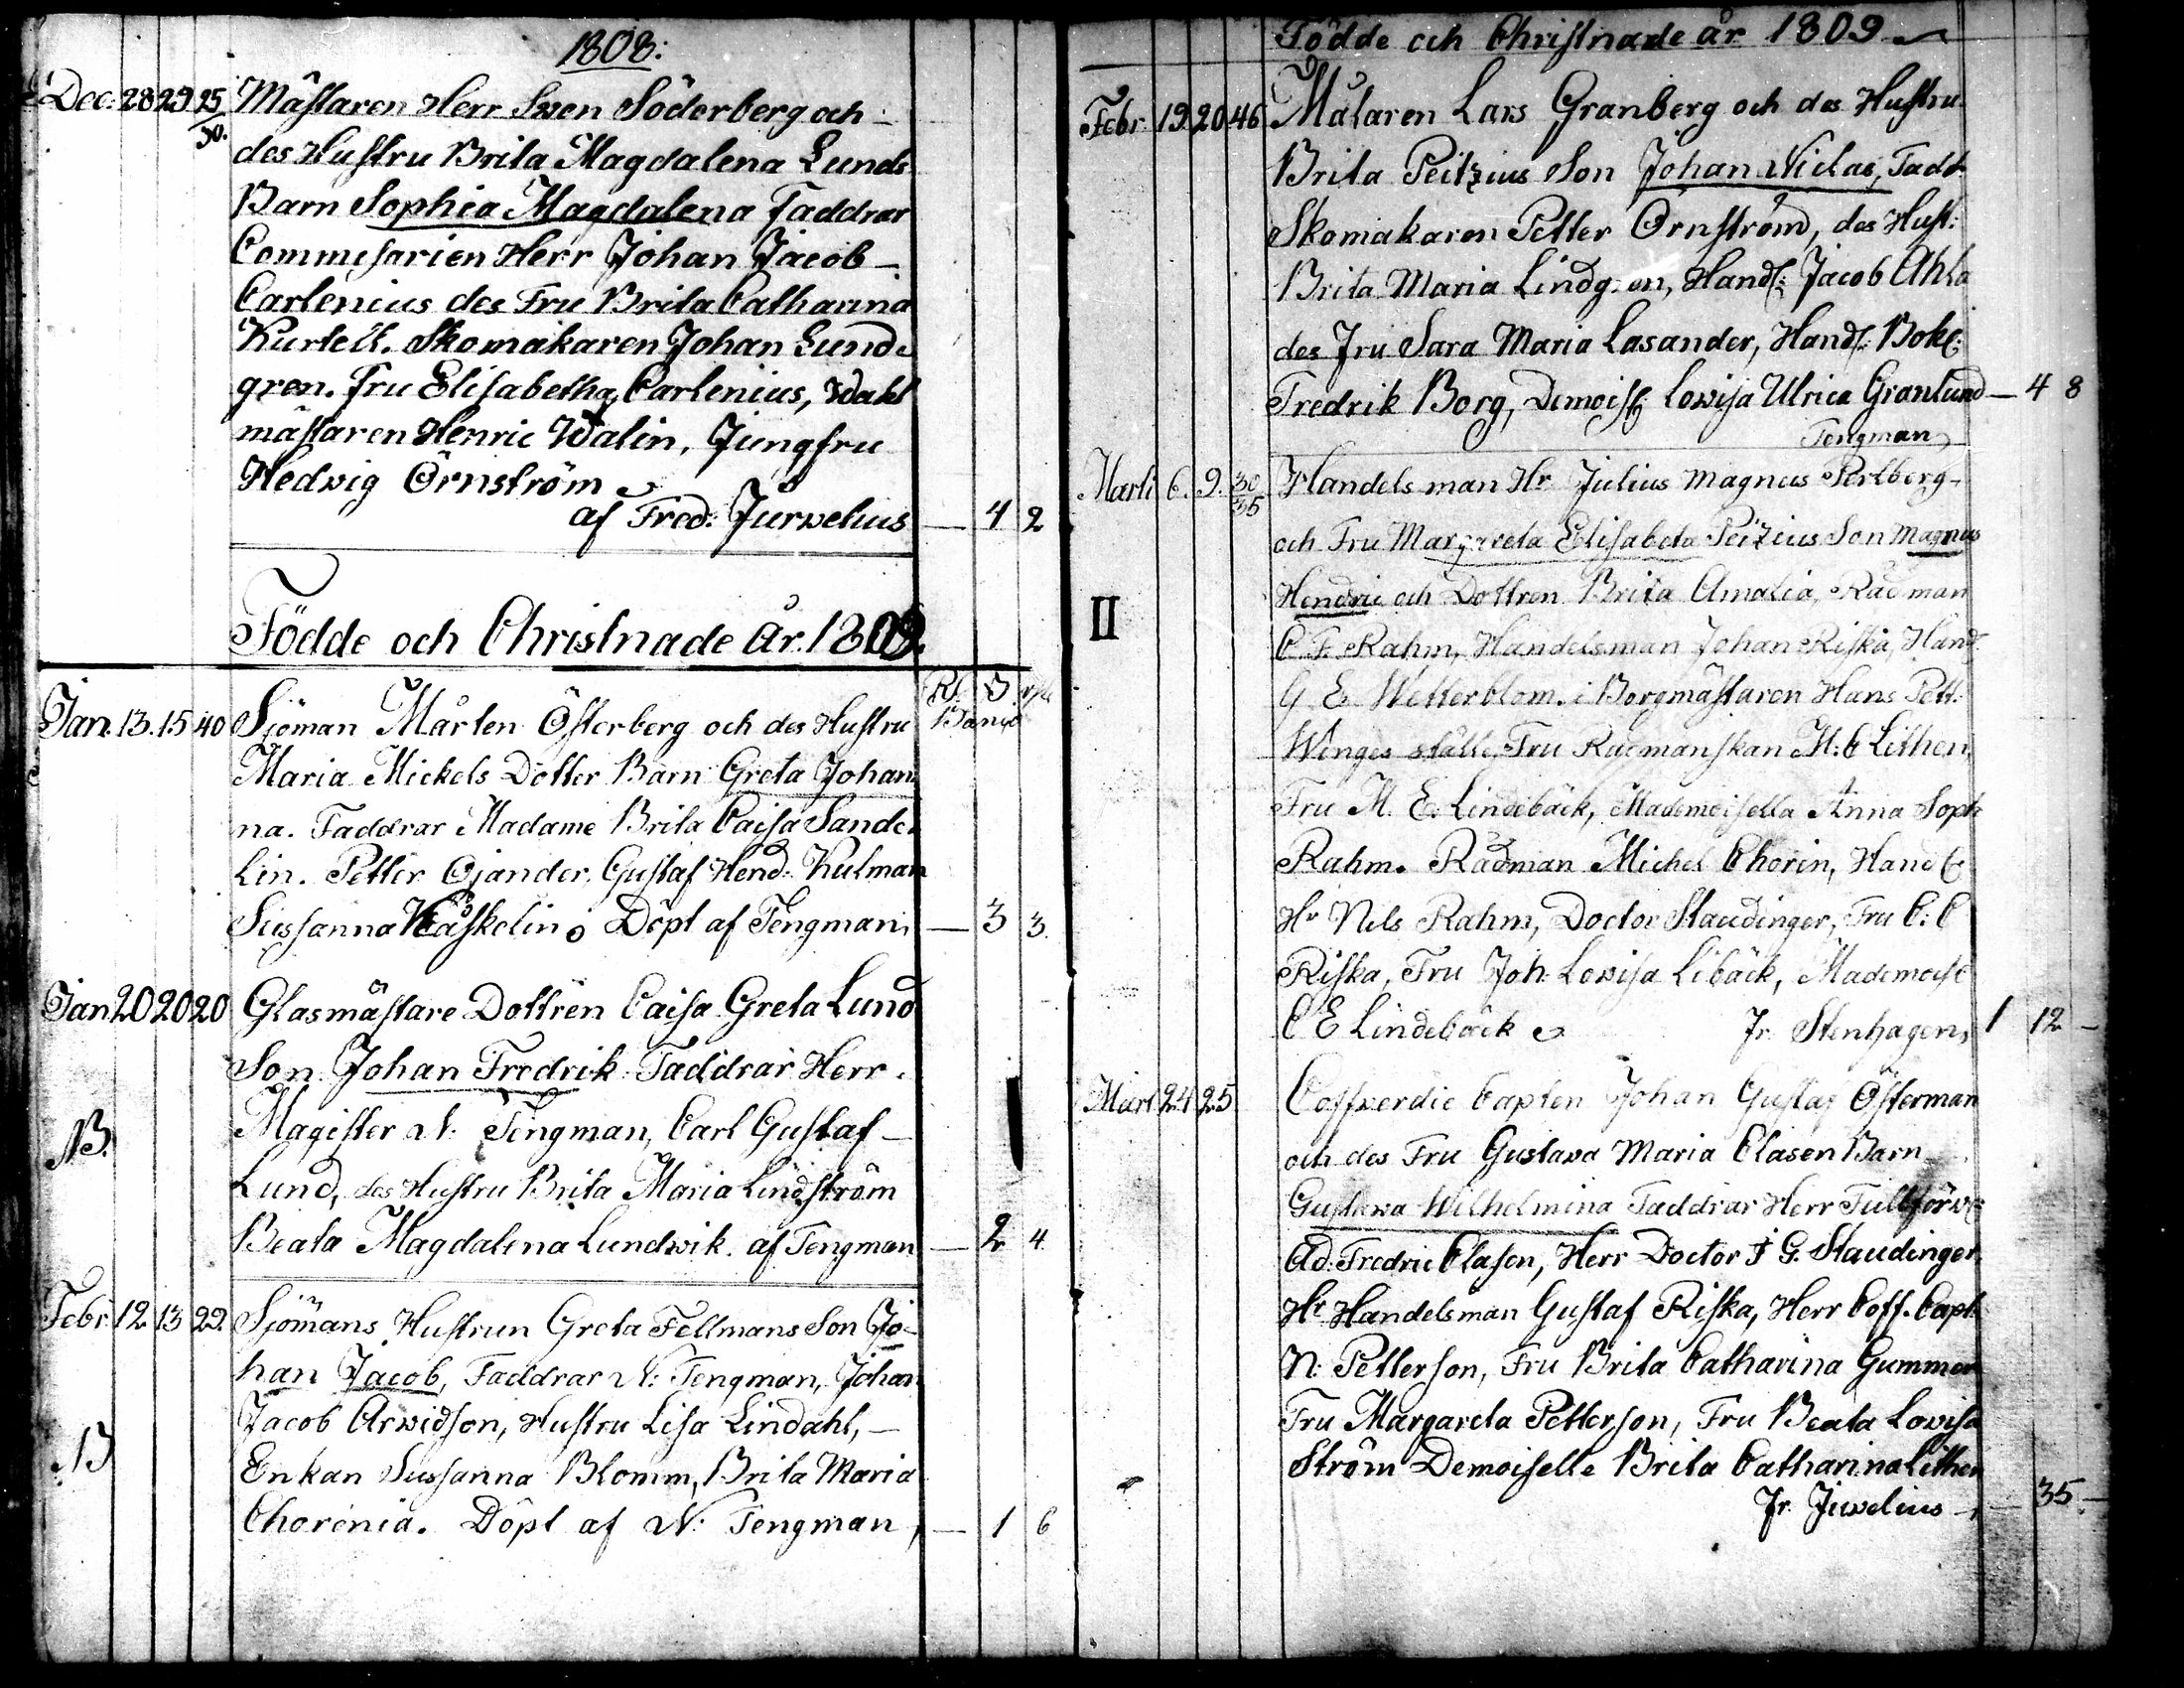 1808:
Dec: 28 29 25/30. Mästaren Herr Swen Söderberg och
des Hustru Brita Magdalena Lunds
Barn Sophia Magdalena Faddrar
Commisarien Herr Johan Jacob
Carlenius des Fru Brita Catharina
Kurtell. Skomakaren Johan Lund-
gren. Fru Elisabetha Carlenius, Wakt
mästaren Henric Walin, Jungfru
Hedwig Örnström
af Fred: Jurvelius — 4 2
Födde och Christnade År. 1809.
Jan. 13. 15 40 Sjöman Mårten Österberg och des Hustru
Maria Mickels Dotter Barn Greta Johan-
na. Faddrar Madame Brita Caisa Sande-
lin. Petter Ojander, Gustaf Hend: Kulman
Sussanna Kåskelin Döpt af Tengman — 3 3.
Jan 20 20 20 Glasmästare Dottren Caisa Greta Lund
Son Johan Fredrik Faddrar Herr
Magister N: Tengman, Carl Gustaf
NB. Lund, des Hustru Brita Maria Lindström
Beata Magdalena Lundwik. af Tengman — 2 4
Febr. 12 13 22. Sjömans Hustrun Greta Fellmans Son Jo-
han Jacob, Faddrar N: Tengman, Johan
Jacob Arwidson, Hustru Lisa Lindahl,
NB Enkan Sussanna Blomm, Brita Maria
Chorenia. Döpt af N: Tengman, — 1 6
Födde och Christnade år 1809
Febr. 19. 20 46 Målaren Lars Granberg och des Hustru
Brita Peitzius Son Johan Niclas, Fadr.
Skomakaren Petter Örnström, des Hust:
Brita Maria Lindgren, Handl: Jacob Ahla
des Fru Sara Maria Lasander, Handl: Bokl:
Fredrik Borg, Demoisl: Lowisa Ulrica Granlund — 4 8
Tengman
Marti 6. 9. 30/35 Handelsman Hr Julius Magnus Perlberg
och Fru Margareta Elisabeta Peizius Son Magnus
II Hendric och Dottren Brita Amalia, Rådman
C F. Rahm, Handelsman Johan Riska, Handl.
G E Wetterblom. i Borgmästaren Hans Pett:
Winges ställe, Fru Rådmanskan M: C Lithen,
Fru M. E. Lindebäck, Mademoisella Anna Soph
Rahm. Rådman Michel Chorin, Handl:
Hr Nils Rahm, Doctor Staudinger, Fru C: C
Riska, Fru Joh: Lowisa Libäck, Mademoisl
C E Lindebäck Fr. Stenhagen, 1 12 —
Mart 24 25 Coffverdie Capten Johan Gustaf Österman
och des Fru Gustava Maria Clasen Barn
Gustava Wilhelmina Faddrar Herr Tullförw:
Ad. Fredric Clasen, Herr Doctor J G. Staudinger,
Hr Handelsman Gustaf Riska, Herr Coff. Capt:
N: Petterson, Fru Brita Catharina Gummer
Fru Margareta Petterson, Fru Beata Lowisa
Ström Demoiselle Brita Catharina Lithen
Fr. Juvelius — 35. —